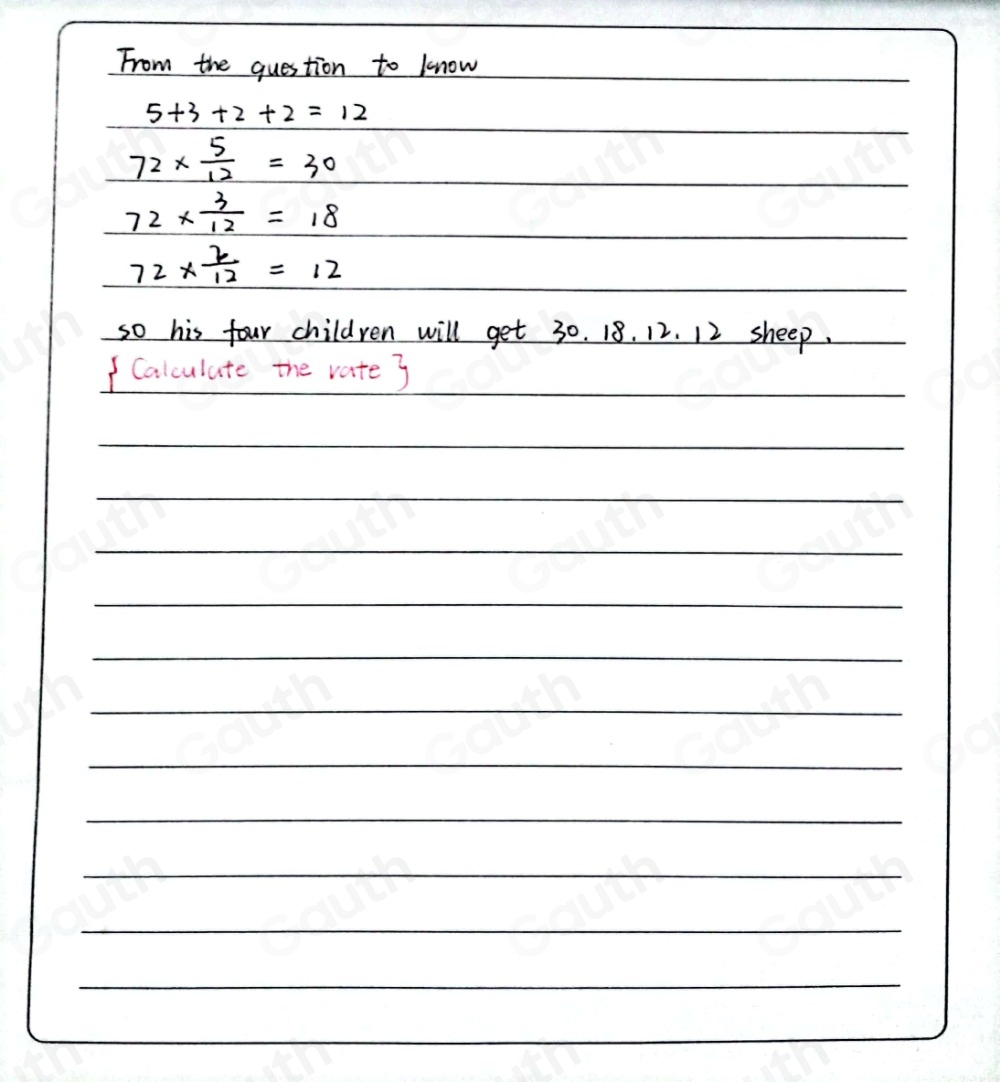 From the question to know
5+3+2+2 = 12
72 × 5/12 = 30
72 × 3/12 = 18
72 × 2/12 = 12
so his four children will get 30. 18. 12. 12 sheep.
{ Calculate the rate }